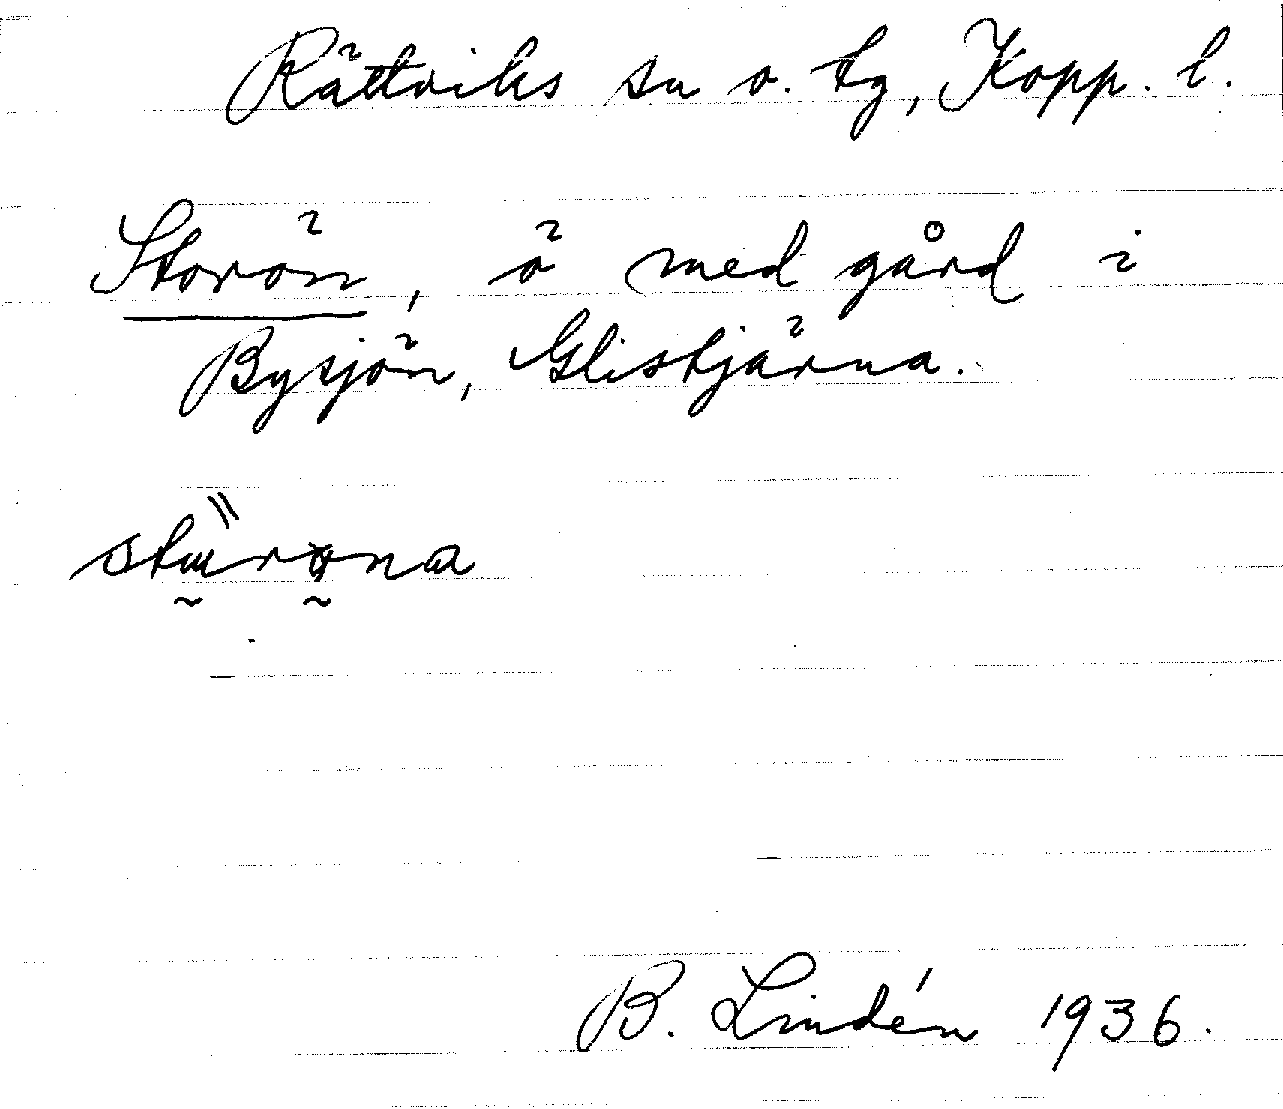 Rättviks sn o. tg, Kopp. l.
Storön, ö med gård i
Bysjön, Glistjärna.
B. Lindén 1936.